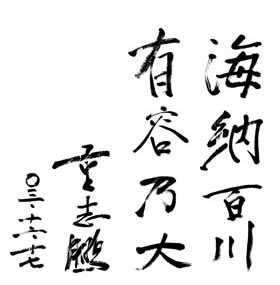 海纳百川
有容乃大
志
〇三·十二·十七